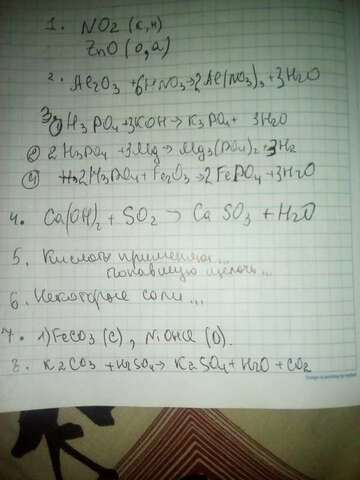 1. NO2 (к,н)
ZnO (о,а)
2. Al2O3 + 6HNO3 → 2Al(NO3)3 + 3H2O
3. 1) H3PO4 + 3KOH → K3PO4 + 3H2O
2) 2H3PO4 + 3Mg → Mg3(PO4)2 + 3H2
4) 2H3PO4 + Fe2O3 → 2FePO4 + 3H2O
4. Ca(OH)2 + SO2 → CaSO3 + H2O
5. Кислоты применяют...
попавшую щелочь...
6. Некоторые соли...
7. 1) FeCO3 (с), NiOHCl (о).
8. K2CO3 + H2SO4 → K2SO4 + H2O + CO2